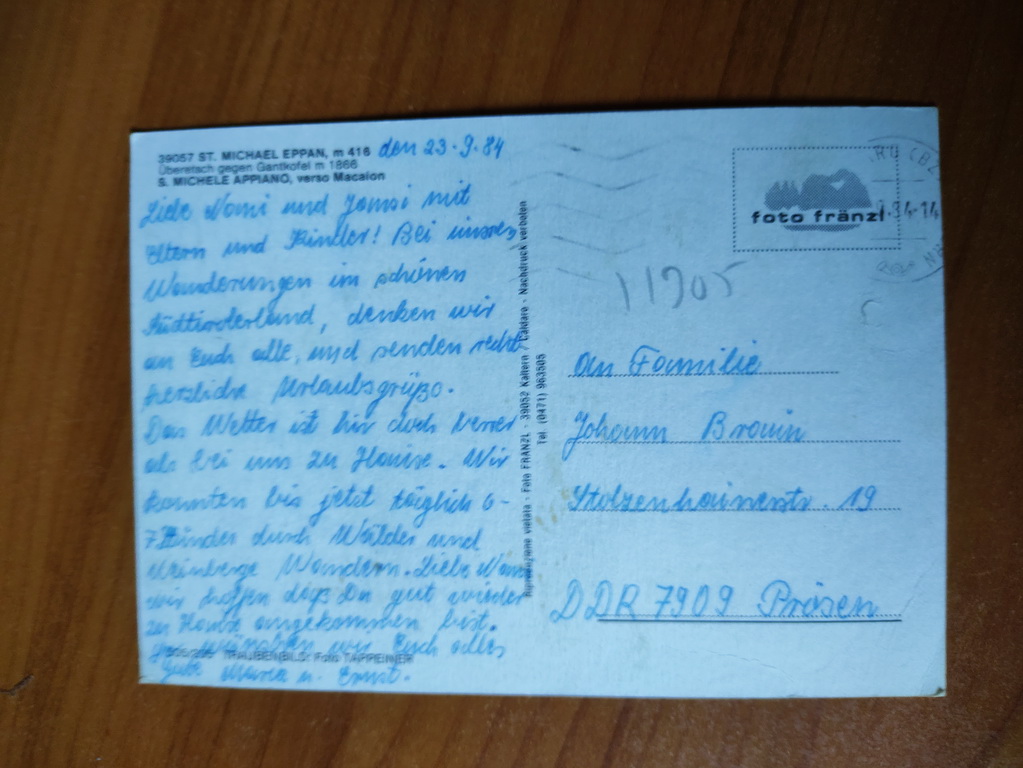 39057 ST. MICHAEL EPPAN, m 416
Überetsch gegen Gantkofel m 1866
S. MICHELE APPIANO, verso Macaion
den 23.9.84
Liebe Nomi und Jansi mit
Eltern und Kinder! Bei unseren
Wanderungen im schönen
Südtirolerland, denken wir
an Euch alle, und senden recht
herzliche Urlaubsgrüße.
Das Wetter ist hir doch besser
als bei uns zu Hause. Wir
konnten bis jetzt täglich 6-
7 Stunden durch Wälder und
Weinberge Wandern. Liebe Nomi
wir hoffen daß Du gut wieder
zu Hause angekommen bist.
wünschen wir Euch alles
Gute Maria u. Ernst.
TRAUBENBILD: Foto TAPPEINER
Riproduzione vietata - Foto FRÄNZL - 39052 Kaltern / Caldaro - Nachdruck verboten
Tel. (0471) 963505
foto fränzl
.84-14
11905
An Familie
Johann Braun
Stolzenhainerstr. 19
DDR 7909 Prösen